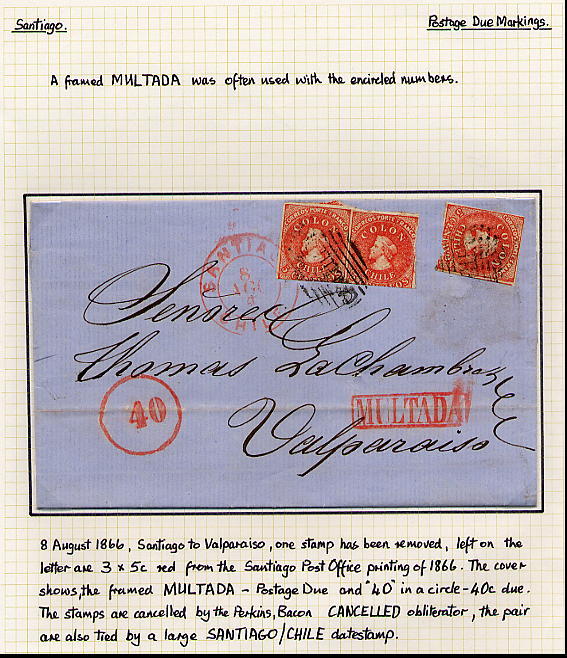 Santiago.
Postage Due Markings.
A framed MULTADA was often used with the encircled numbers.
CORREOS PORTE FRANCO
COLON
CHILE
CORREOS PORTE FRANCO
COLON
CHILE
COLON
CHILE
SANTIAGO
8
AGO
CHILE
Senores
Thomas LaChambre
40
MULTADA
Valparaiso
8 August 1866, Santiago to Valparaiso, one stamp has been removed, left on the
letter are 3 x 5c red from the Santiago Post Office printing of 1866. The cover
shows, the framed MULTADA - Postage Due and "40" in a circle - 40c due.
The stamps are cancelled by the Perkins, Bacon CANCELLED obliterator, the pair
are also tied by a large SANTIAGO/CHILE datestamp.